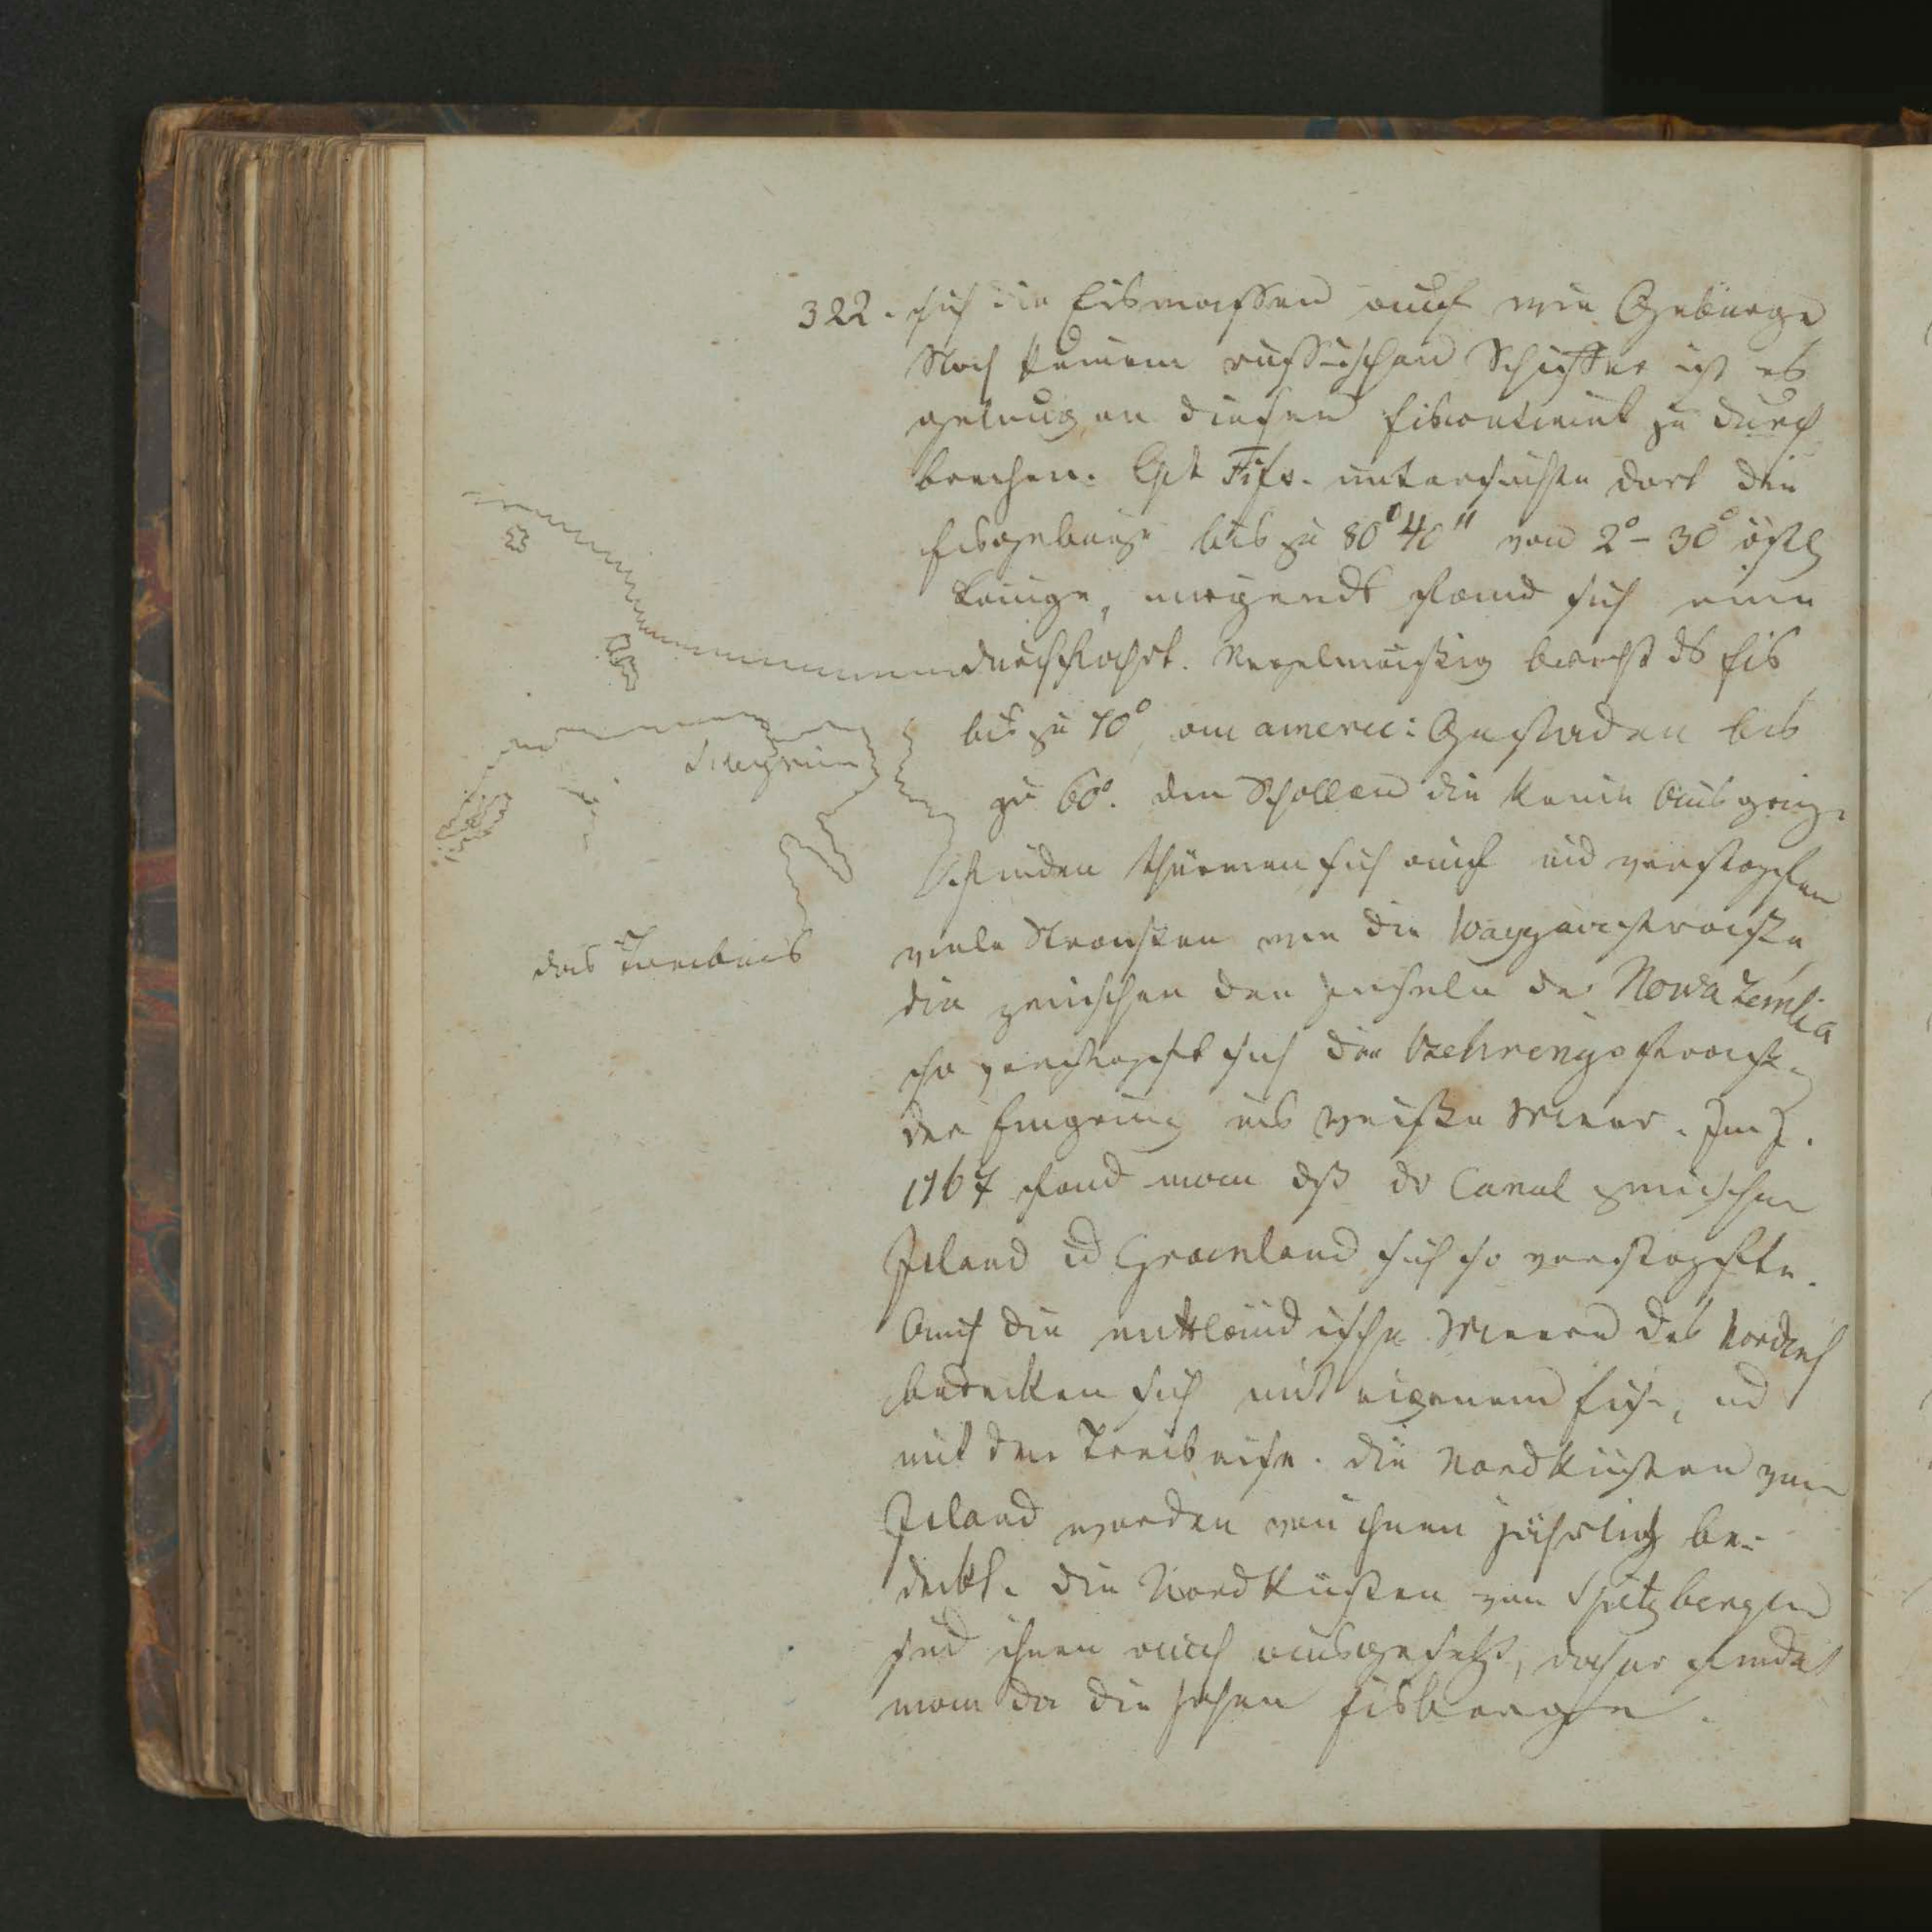 322. sich die Eismassen auch wie Gebürge
Noch keinem russischen Schiffer ist es
gelungen diesen Eiscontinent zu durch
brechen. Cpt Fifs. untersuchte dort die
Eisgebirge bis zu 80° 40" von 2°-30° östl
Länge, nirgends fand sich eine
durchfahrt. Regelmässig bricht ds Eis
bis zu 70°, am americ: Gestaden bis
zu 60°. den Schollen die keine Ausgänge
finden thürmen sich auch und verstopfen
viele Strassen wie die Waygazstrasse
die zwischen den Inseln der Nowa Zemlia
so verstopft sich die Behringsstrasse
der Eingang ins weisse Meer. Im J.
1767 fand man dß dr Canal zwischen
Island ud Groenland sich so verstopfte.
Auch die mittländische Meere des Nordens
bedecken sich mit eigenem Eise, ud
mit dem Treibeise. die Nordküsten von
Island werden von ihnen jährlich be-
deckt. die Nordküsten von Spitzbergen
sind ihnen auch ausgesetzt, daher findet
man da die hohen Eisberge.
das Treibeis